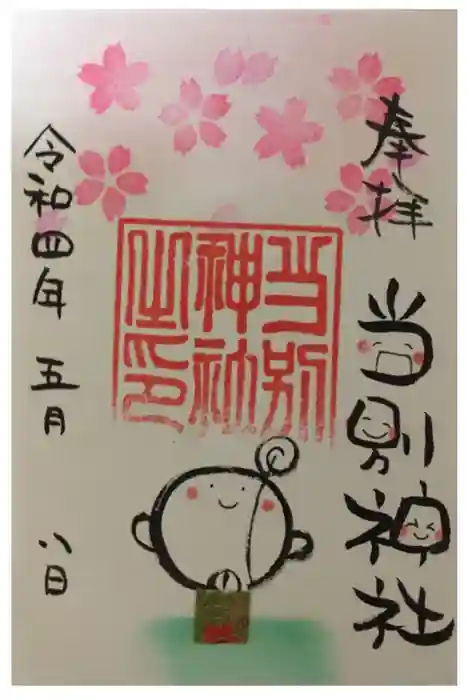 奉拝
当別神社
当別
神社
之印
令和四年 五月 八日